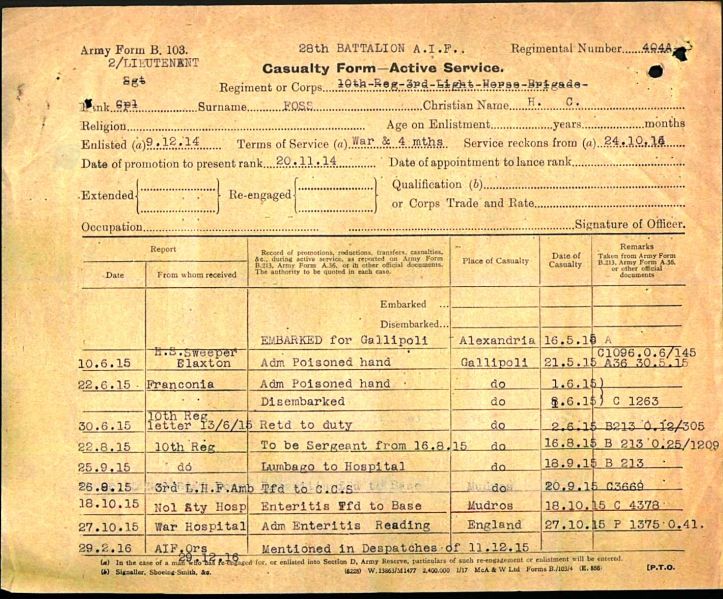 Army Form B. 103.
28th BATTALION A.I.F..
Regimental Number 404A
2/LIEUTENANT
Casualty Form—Active Service.
Sgt
Regiment or Corps 10th Reg 3rd Light Horse Brigade
Rank Cpl Surname FOSS Christian Name H. C.
Religion Age on Enlistment years months
Enlisted (a) 9.12.14 Terms of Service (a) War & 4 mths. Service reckons from (a) 24.10.14
Date of promotion to present rank 20.11.14 Date of appointment to lance rank
Extended Re-engaged Qualification (b)
or Corps Trade and Rate
Occupation Signature of Officer.
Report
Date
From whom received
Record of promotions, reductions, transfers, casualties, &c., during active service, as reported on Army Form B.213, Army Form A.36, or in other official documents. The authority to be quoted in each case.
Place of Casualty
Date of Casualty
Remarks
Taken from Army Form B.213, Army Form A.36, or other official documents
Embarked ...
Disembarked...
EMBARKED for Gallipoli Alexandria 16.5.15 A
H.S. Sweeper C1096.0.6/145
10.6.15 Elaxton Adm Poisoned hand Gallipoli 21.5.15 A36 30.5.15
22.6.15 Franconia Adm Poisoned hand do 1.6.15)
Disembarked do .6.15) C 1263
10th Reg
30.6.15 letter 13/6/15 Retd to duty do 2.6.15 B213 0.12/305
22.8.15 10th Reg To be Sergeant from 16.8.15 do 16.8.15 B 213 0.25/1209
25.9.15 do Lumbago to Hospital do 18.9.15 B 213
26.9.15 3rd L.H.F.Amb Tfd to C.C.S do 20.9.15 C3669
18.10.15 Nol Sty Hosp Enteritis Tfd to Base Mudros 18.10.15 C 4378
27.10.15 War Hospital Adm Enteritis Reading England 27.10.15 P 1375 0.41.
29.2.16 AIF.Ors Mentioned in Despatches of 11.12.15
29.12.16
(a) In the case of a man who has re-engaged for, or enlisted into Section D, Army Reserve, particulars of such re-engagement or enlistment will be entered.
(b) Signaller, Shoeing-Smith, &c.
(6225) W. 13863/M1477 2,400,000 1/17 McA & W Ltd Forms B./103/4 (E. 856) [P.T.O.